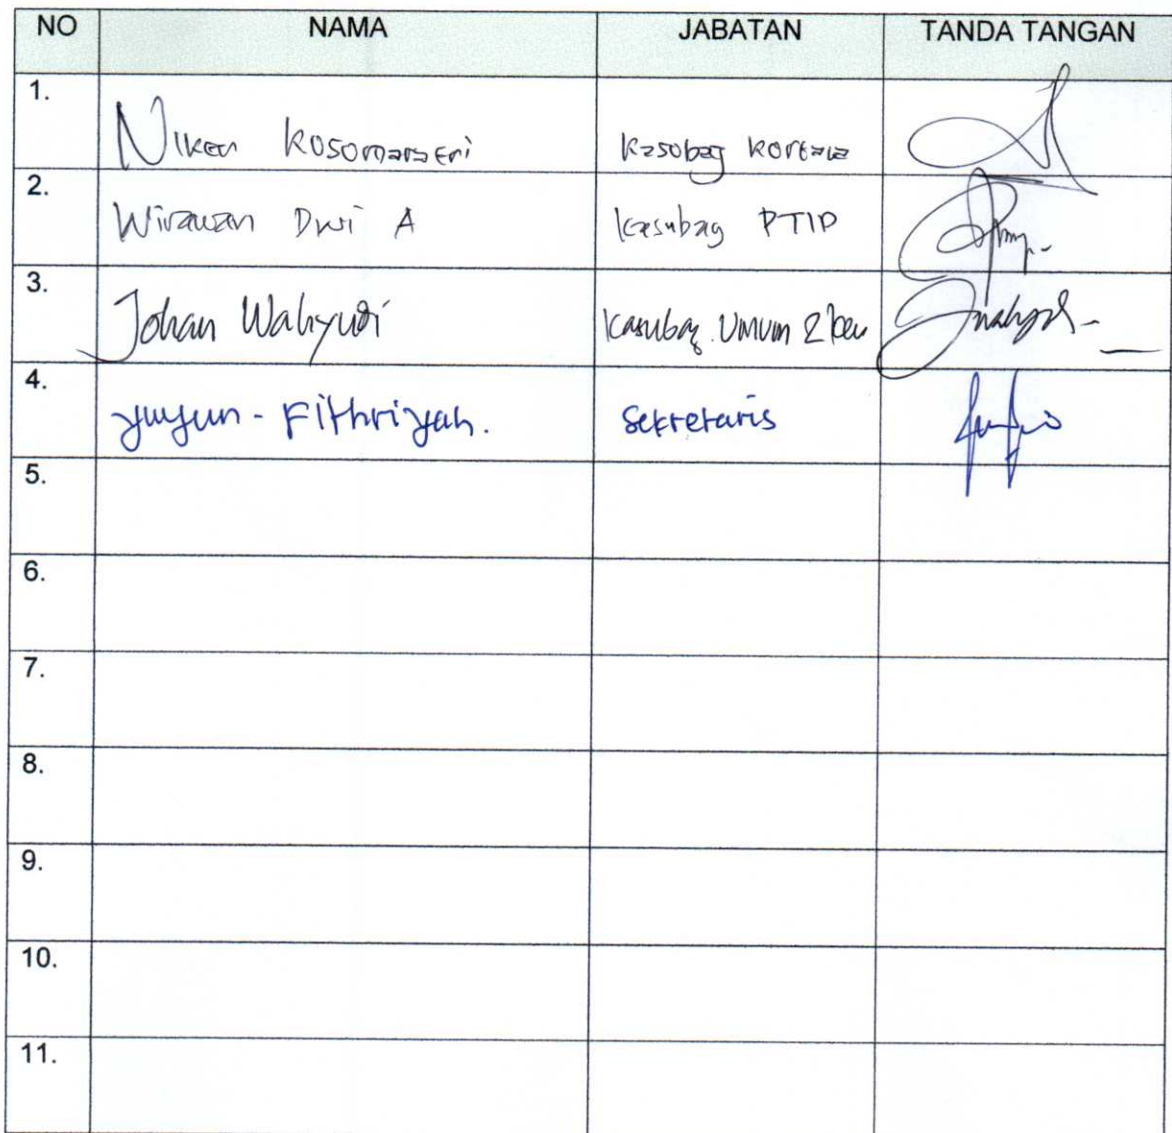 NO NAMA JABATAN TANDA TANGAN
1. Niken Kosomarseri Kasobag Kortala
2. Wirawan Dwi A Kasubag PTIP
3. Johan Wahyudi Kasubag Umum & keu
4. yuyun - Fithriyah. Sekretaris
5.
6.
7.
8.
9.
10.
11.